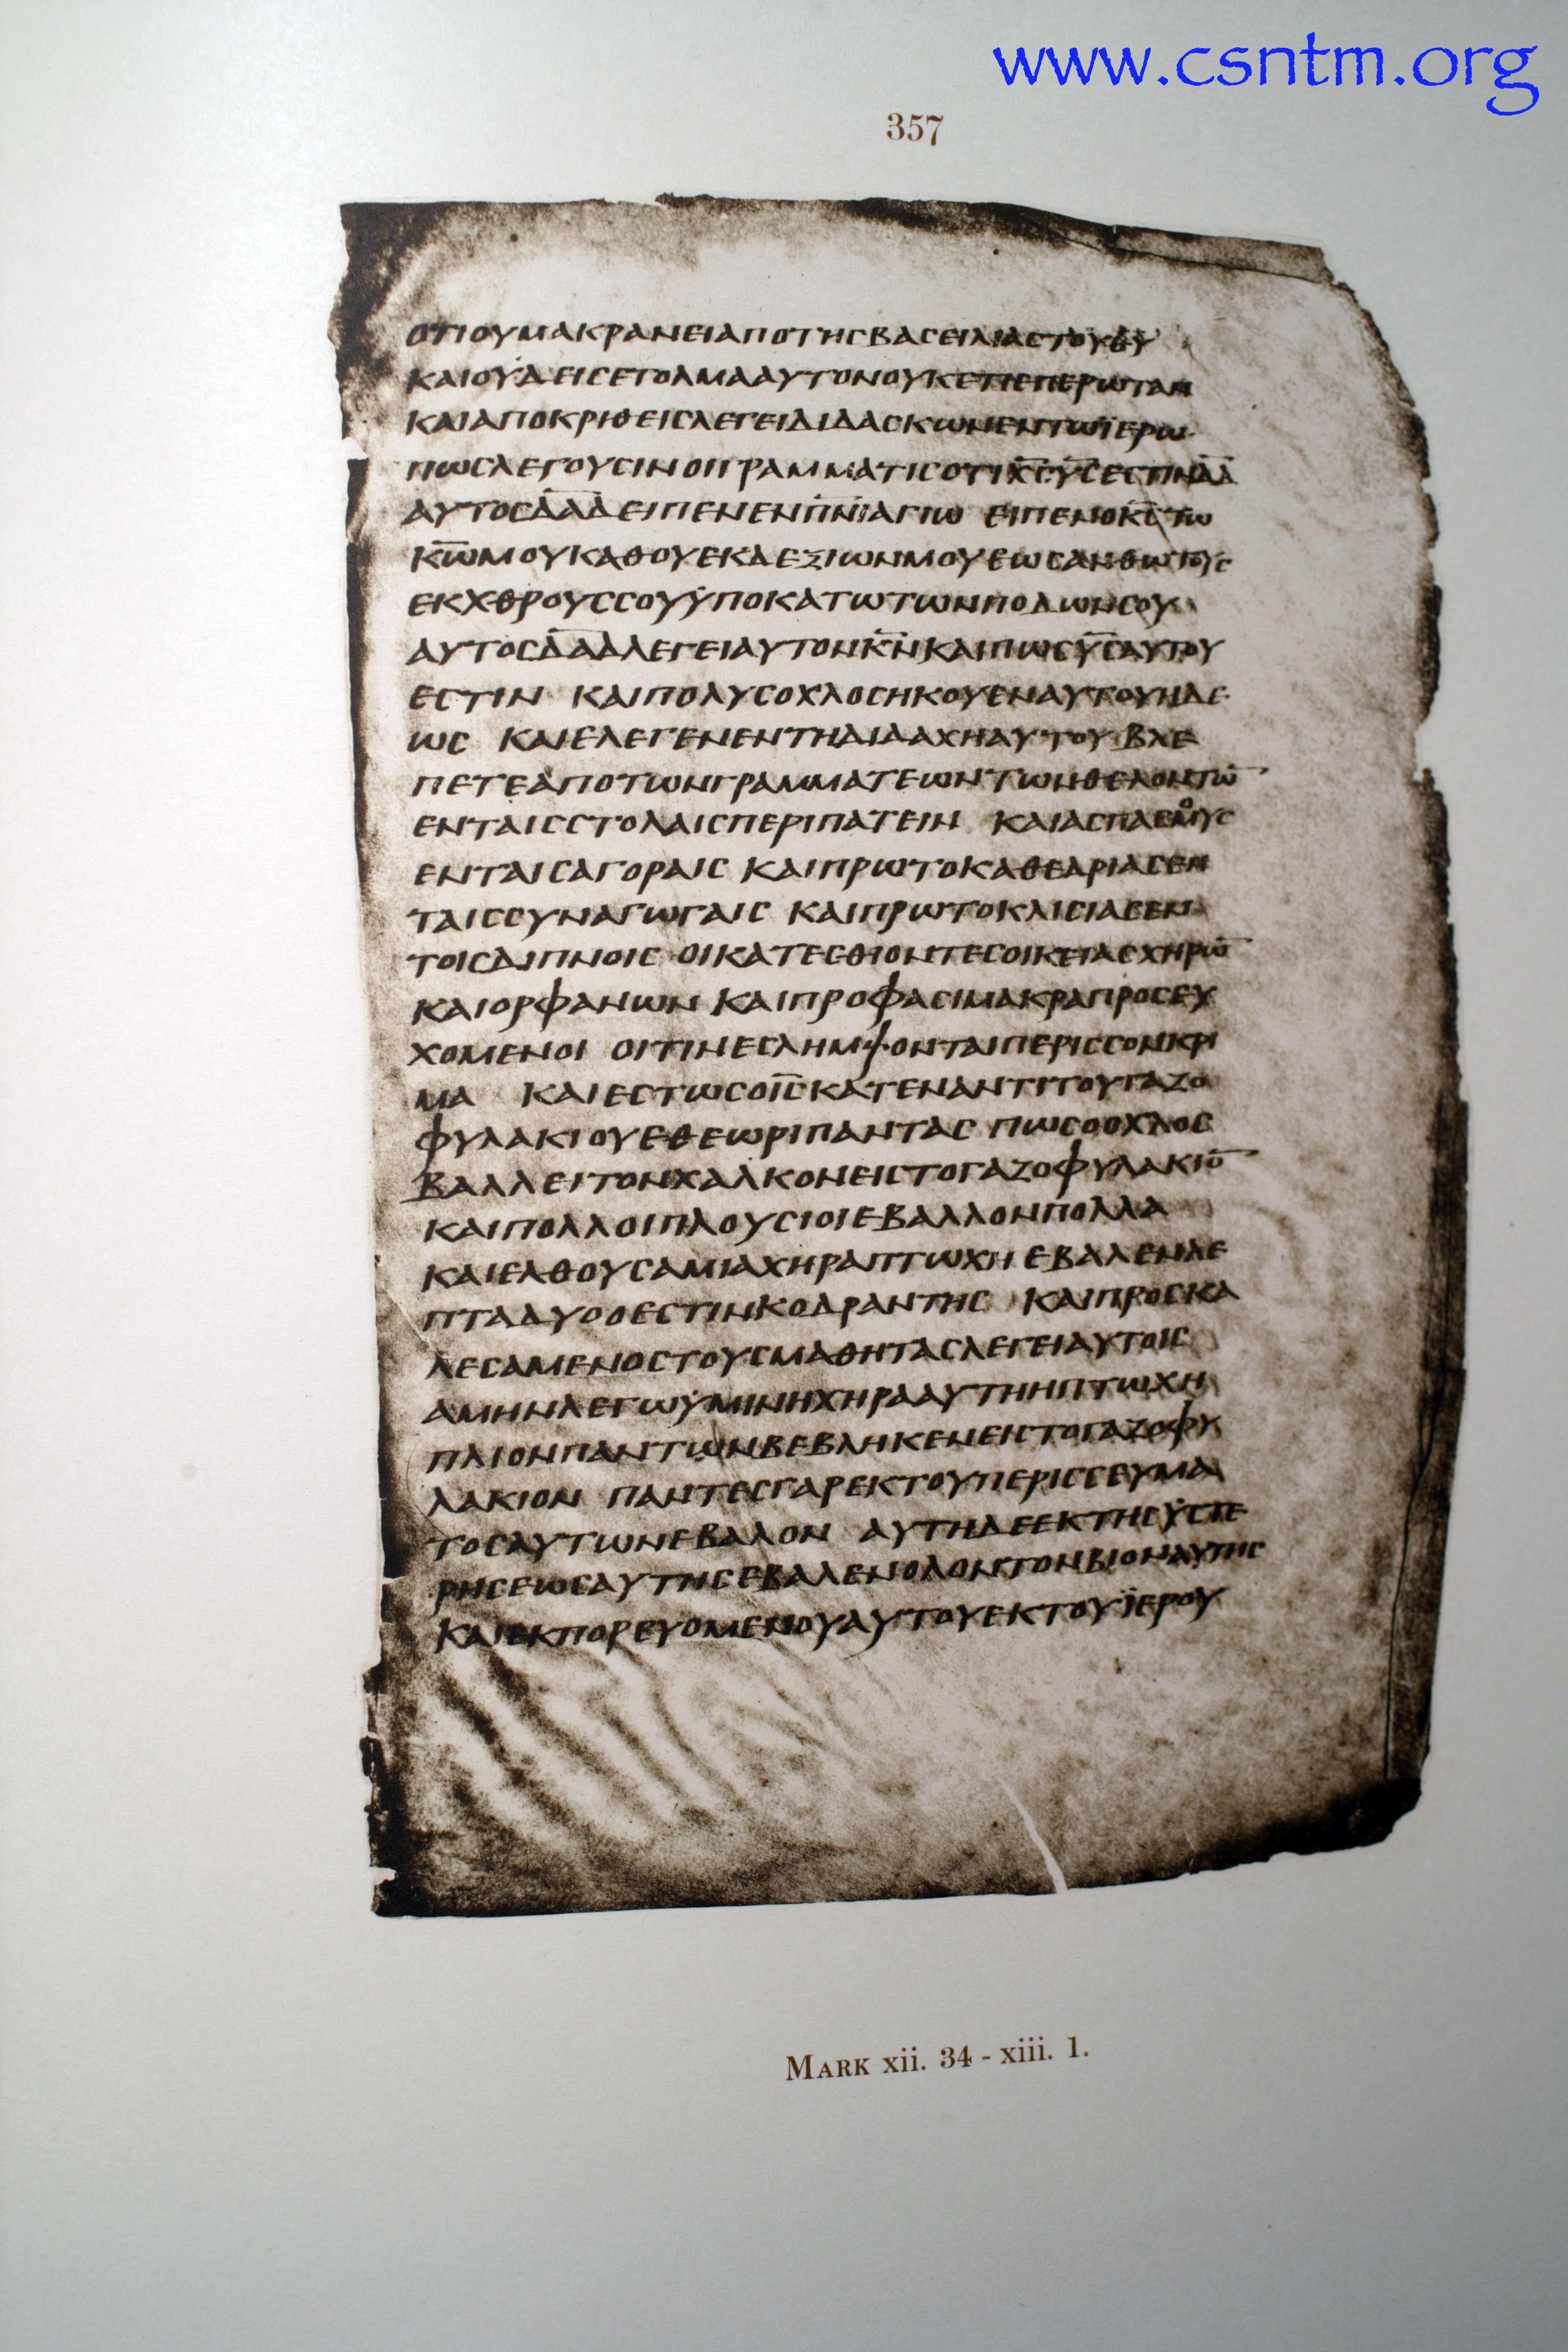 www.csntm.org
357
ΟΤΙΟΥΜΑΚΡΑΝΕΙΑΠΟΤΗCΒΑCΕΙΛΙΑCΤΟΥΘ̅Υ̅
ΚΑΙΟΥΔΕΙCΕΤΟΛΜΑΑΥΤΟΝΟΥΚΕΤΙΕΠΕΡΩΤΑΝ
ΚΑΙΑΠΟΚΡΙΘΕΙCΛΕΓΕΙΔΙΔΑCΚΩΝΕΝΤΩΪΕΡΩ
ΠΩCΛΕΓΟΥCΙΝΟΙΓΡΑΜΜΑΤΙCΟΤΙΧ̅C̅Υ̅C̅ΕCΤΙΝΔ̅Α̅Δ̅
ΑΥΤΟCΔ̅Α̅Δ̅ΕΙΠΕΝΕΝΠ̅Ν̅Ι̅ΑΓΙΩ ΕΙΠΕΝΟΚ̅C̅ΤΩ
Κ̅Ω̅ΜΟΥΚΑΘΟΥΕΚΔΕΞΙΩΝΜΟΥΕΩCΑΝΘΩΤΟΥC
ΕΚΧΘΡΟΥCCΟΥΫΠΟΚΑΤΩΤΩΝΠΟΔΩΝCΟΥ
ΑΥΤΟCΔ̅Α̅Δ̅ΛΕΓΕΙΑΥΤΟΝΚ̅Ν̅ΚΑΙΠΩCΥ̅C̅ΑΥΤΟΥ
ΕCΤΙΝ ΚΑΙΠΟΛΥCΟΧΛΟCΗΚΟΥΕΝΑΥΤΟΥΗΔΕ
ΩC ΚΑΙΕΛΕΓΕΝΕΝΤΗΔΙΔΑΧΗΑΥΤΟΥ ΒΛΕ
ΠΕΤΕΑΠΟΤΩΝΓΡΑΜΜΑΤΕΩΝΤΩΝΘΕΛΟΝΤΩ̅
ΕΝΤΑΙCCΤΟΛΑΙCΠΕΡΙΠΑΤΕΙΝ ΚΑΙΑCΠΑCΜΟΥC
ΕΝΤΑΙCΑΓΟΡΑΙC ΚΑΙΠΡΩΤΟΚΑΘΕΔΡΙΑCΕΝ
ΤΑΙCCΥΝΑΓΩΓΑΙC ΚΑΙΠΡΩΤΟΚΛΙCΙΑCΕΝ
ΤΟΙCΔΙΠΝΟΙC ΟΙΚΑΤΕCΘΙΟΝΤΕCΟΙΚΕΙΑCΧΗΡΩ̅
ΚΑΙΟΡΦΑΝΩΝ ΚΑΙΠΡΟΦΑCΙΜΑΚΡΑΠΡΟCΕΥ
ΧΟΜΕΝΟΙ ΟΙΤΙΝΕCΛΗΜΨΟΝΤΑΙΠΕΡΙCCΟΝΚΡΙ
ΜΑ ΚΑΙΕCΤΩCΟΙ̅C̅ΚΑΤΕΝΑΝΤΙΤΟΥΓΑΖΟ
ΦΥΛΑΚΙΟΥΕΘΕΩΡΙΠΑΝΤΑC ΠΩCΟΟΧΛΟC
ΒΑΛΛΕΙΤΟΝΧΑΛΚΟΝΕΙCΤΟΓΑΖΟΦΥΛΑΚΙΟ̅
ΚΑΙΠΟΛΛΟΙΠΛΟΥCΙΟΙΕΒΑΛΛΟΝΠΟΛΛΑ
ΚΑΙΕΛΘΟΥCΑΜΙΑΧΗΡΑΠΤΩΧΗ ΕΒΑΛΕΝΛΕ
ΠΤΑΔΥΟΟΕCΤΙΝΚΟΔΡΑΝΤΗC ΚΑΙΠΡΟCΚΑ
ΛΕCΑΜΕΝΟCΤΟΥCΜΑΘΗΤΑCΛΕΓΕΙΑΥΤΟΙC
ΑΜΗΝΛΕΓΩΫΜΙΝΗΧΗΡΑΑΥΤΗΗΠΤΩΧΗ
ΠΛΙΟΝΠΑΝΤΩΝΒΕΒΛΗΚΕΝΕΙCΤΟΓΑΖΟΦΥ
ΛΑΚΙΟΝ ΠΑΝΤΕCΓΑΡΕΚΤΟΥΠΕΡΙCCΕΥΜΑ
ΤΟCΑΥΤΩΝΕΒΑΛΟΝ ΑΥΤΗΔΕΕΚΤΗCΫCΤΕ
ΡΗCΕΩCΑΥΤΗCΕΒΑΛΕΝΟΛΟΝΤΟΝΒΙΟΝΑΥΤΗC
ΚΑΙΕΚΠΟΡΕΥΟΜΕΝΟΥΑΥΤΟΥΕΚΤΟΥΪΕΡΟΥ
MARK xii. 34 - xiii. 1.